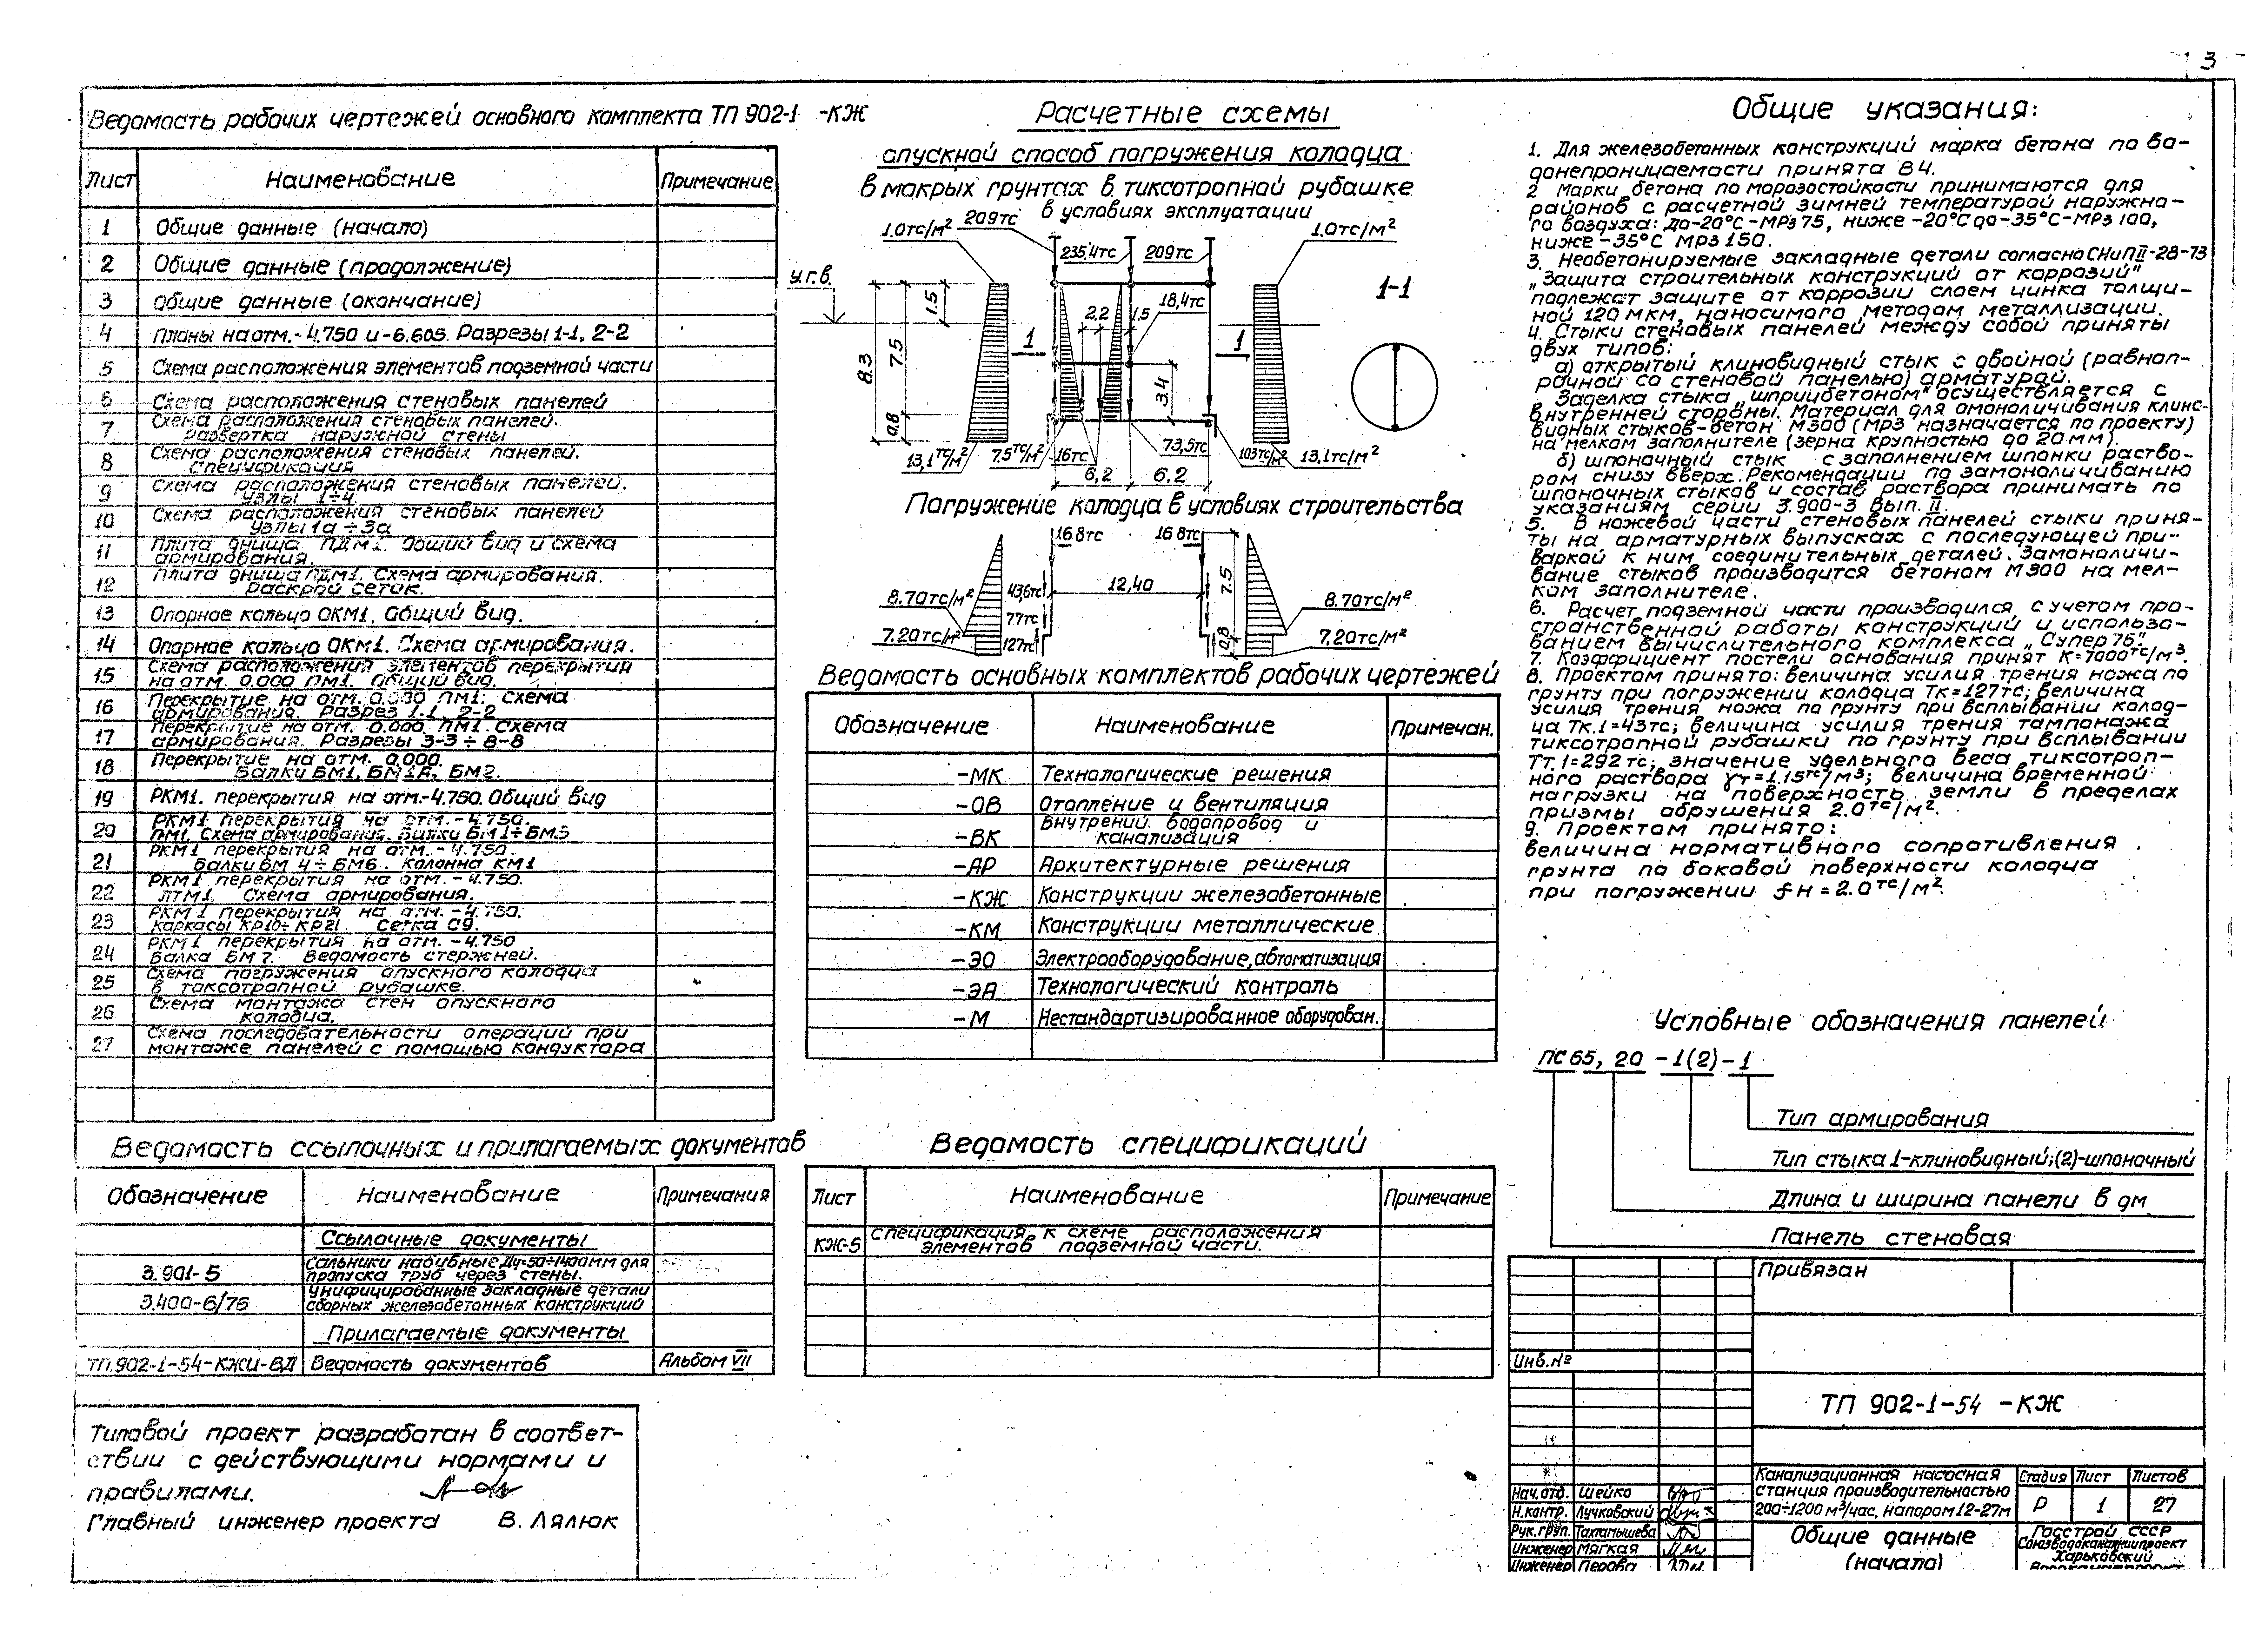 3
Ведомость рабочих чертежей основного комплекта ТП 902-1 -КЖ
Лист Наименование Примечание
1 Общие данные (начало)
2 Общие данные (продолжение)
3 Общие данные (окончание)
4 Планы на отм.-4.750 и -6.605. Разрезы 1-1, 2-2
5 Схема расположения элементов подземной части
6 Схема расположения стеновых панелей
7 Схема расположения стеновых панелей.
Развертка наружной стены
8 Схема расположения стеновых панелей.
Спецификация
9 Схема расположения стеновых панелей.
Узлы 1÷4
10 Схема расположений стеновых панелей
Узлы 1а÷3а
11 Плита днища ПДм1. Общий вид и схема
армирования.
12 Плита днища ПДМ1. Схема армирования.
Раскрой сеток.
13 Опорное кольцо ОКМ1. Общий вид.
14 Опорное кольцо ОКМ1. Схема армирования.
15 Схема расположения элементов перекрытия
на отм. 0.000 ПМ1. Общий вид.
16 Перекрытие на отм. 0.000 ПМ1. Схема
армирования. Разрез 1-1, 2-2
17 Перекрытие на отм. 0.000. ПМ1. Схема
армирования. Разрезы 3-3 ÷ 8-8
18 Перекрытие на отм. 0.000.
Балки БМ1, БМ1А, БМ2.
19 РКМ1. перекрытия на отм.-4.750. Общий вид
20 РКМ1 перекрытия на отм. -4.750.
ПМ1. Схема армирования. Балки БМ1÷БМ3
21 РКМ1 перекрытия на отм. -4.750.
Балки БМ 4÷БМ6. Колонна КМ1
22 РКМ1 перекрытия на отм. -4.750.
ЛТМ1. Схема армирования.
23 РКМ1 перекрытия на отм. -4.750.
Каркасы КР10÷КР21 Сетка С9.
24 РКМ1 перекрытия на отм. -4.750
Балка БМ 7. Ведомость стержней.
25 Схема погружения опускного колодца
в токсотропной рубашке.
26 Схема монтажа стен опускного
колодца.
27 Схема последовательности операций при
монтаже панелей с помощью кондуктора
Ведомость ссылочных и прилагаемых документов
Обозначение Наименование Примечания
Ссылочные документы
3.901-5 Сальники набивные Ду=50÷1400мм для
пропуска труб через стены.
3.400-6/76 Унифицированные закладные детали
сборных железобетонных конструкций
Прилагаемые документы
ТП.902-1-54-КЖИ-ВД Ведомость документов Альбом VII
Типовой проект разработан в соответ-
ствии с действующими нормами и
правилами.
Главный инженер проекта В. Лялюк
Расчетные схемы
опускной способ погружения колодца
в мокрых грунтах в тиксотропной рубашке
в условиях эксплуатации
1.0тс/м² 209тс 235.4тс 209тс 1.0тс/м²
У.г.в. 1.5 18,4тс 1-1
2.2 1.5
1 1
8.3 7.5 3.4
0.8
13,1тс/м² 7.5тс/м² 16тс 73,5тс 103тс/м² 13,1тс/м²
6,2 6.2
Погружение колодца в условиях строительства
16 8тс 16 8тс
43,6тс 12,40 7.5
8.70тс/м² 77тс 8.70тс/м²
7.20тс/м² 127тс 0.8 7,20тс/м²
Ведомость основных комплектов рабочих чертежей
Обозначение Наименование Примечан.
-МК Технологические решения
-ОВ Отопление и вентиляция
-ВК Внутрений водопровод и
канализация
-АР Архитектурные решения
-КЖ Конструкции железобетонные
-КМ Конструкции металлические
-ЭО Электрооборудование, автоматизация
-ЭА Технологический контроль
-М Нестандартизированное оборудован.
Ведомость спецификаций
Лист Наименование Примечание
КЖ-5 Спецификация к схеме расположения
элементов подземной части.
Общие указания:
1. Для железобетонных конструкций марка бетона по во-
донепроницаемости принята В4.
2 Марки бетона по морозостойкости принимаются для
районов с расчетной зимней температурой наружно-
го воздуха: до-20°С-МРз 75, ниже -20°С до-35°С-МРз 100,
ниже -35°С МРз 150.
3. Необетонируемые закладные детали согласно СНиП II-28-73
„Защита строительных конструкций от коррозий"
подлежат защите от коррозии слоем цинка толщи-
ной 120 мкм, наносимого методом металлизации.
4. Стыки стеновых панелей между собой приняты
двух типов:
а) открытый клиновидный стык с двойной (равноп-
рочной со стеновой панелью) арматурой.
Заделка стыка „шприцбетоном" осуществляется с
внутренней стороны. Материал для омоноличивания клино-
видных стыков-бетон М300 (МРз назначается по проекту)
на мелком заполнителе (зерна крупностью до 20мм).
б) шпоночный стык с заполнением шпонки раство-
ром снизу вверх. Рекомендации по замоноличиванию
шпоночных стыков и состав раствора принимать по
указаниям серии 3.900-3 Вып. II.
5. В ножевой части стеновых панелей стыки приня-
ты на арматурных выпусках с последующей при-
варкой к ним соединительных деталей. Замоноличи-
вание стыков производится бетоном М300 на мел-
ком заполнителе.
6. Расчет подземной части производился с учетом про-
странственной работы конструкций и использо-
ванием вычислительного комплекса „Супер 76".
7. Коэффициент постели основания принят К=7000тс/м³.
8. Проектом принято: величина усилия трения ножа по
грунту при погружении колодца Тк=127тс; величина
усилия трения ножа по грунту при всплывании колод-
ца Тк.1=43тс; величина усилия трения тампонажа
тиксотропной рубашки по грунту при всплывании
Тт.1=292 тс; значение удельного веса тиксотроп-
ного раствора γт=1.15тс/м³; величина временной
нагрузки на поверхность земли в пределах
призмы обрушения 2.0тс/м².
9. Проектом принято:
величина нормативного сопротивления
грунта по боковой поверхности колодца
при погружении fн = 2.0тс/м²
Условные обозначения панелей
ПС 65, 20 -1(2)-1
Тип армирования
Тип стыка 1-клиновидный;(2)-шпоночный
Длина и ширина панели в дм
Панель стеновая
Привязан
Инв.№
ТП 902-1-54 -КЖ
Канализационная насосная
станция производительностью
200÷1200 м³/час, напором 12-27м
Стадия Лист Листов
Р 1 27
Нач.отд. Шейко
Н.контр. Лучковский
Рук.груп. Тахтамышева
Инженер Мягкая
Инженер Перова
Общие данные
(начало)
Госстрой СССР
Союзводоканалниипроект
Харьковский